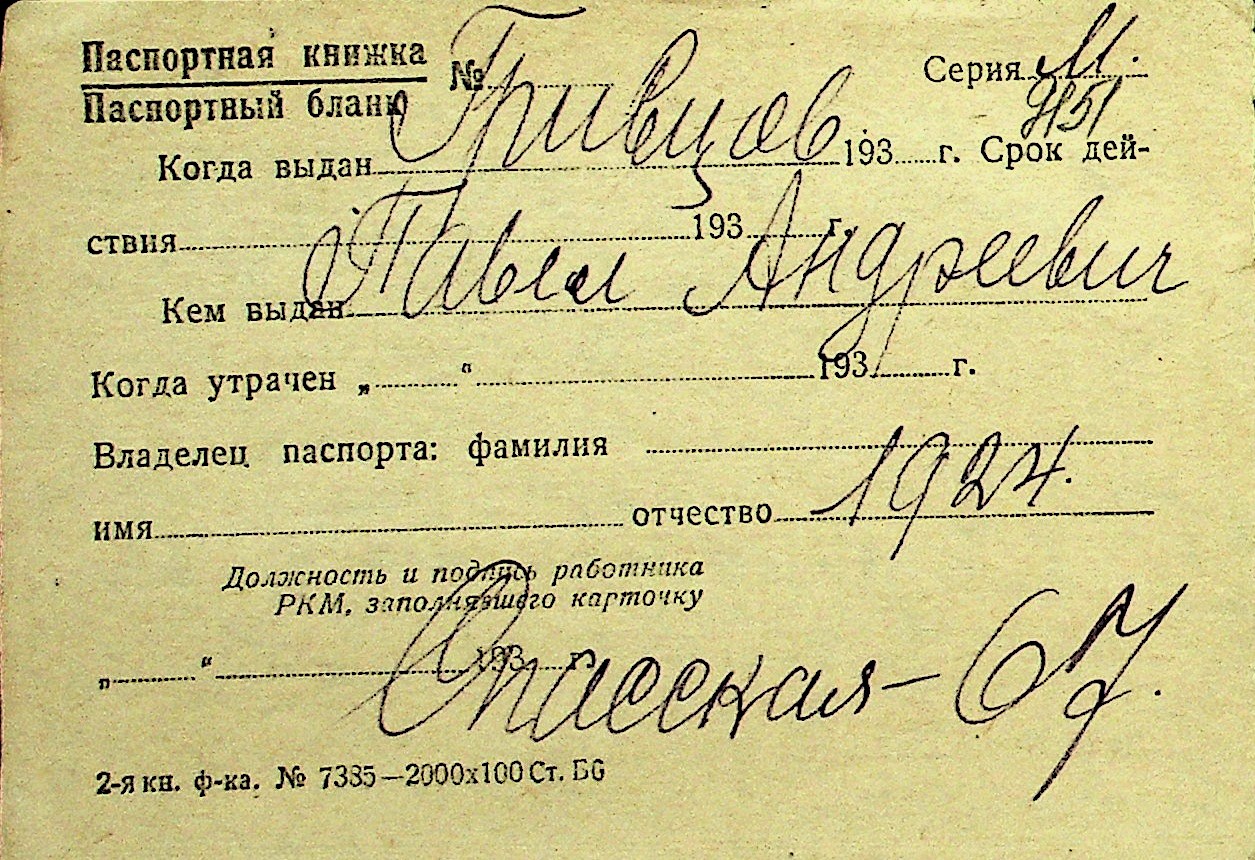 Паспортная книжка
Паспортный бланк № Серия М.
9151
Гривцов
Когда выдан 193 г. Срок дей-
ствия 193 г.
Павел Андреевич
Кем выдан
Когда утрачен „ “ 193 г.
Владелец паспорта: фамилия
1924.
имя отчество
Должность и подпись работника
РКМ, заполнявшего карточку
„ “ 193 г.
Спасская – 67.
2-я кн. ф-ка. № 7385—2000х100 Ст. Бб